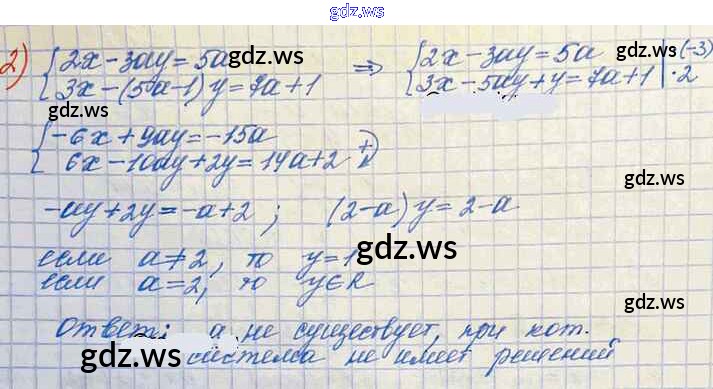 gdz.ws
2) {2x-3ay=5a gdz.ws ⇒ {2x-3ay=5a gdz.ws |·(-3)
{3x-(5a-1)y=7a+1 {3x-5ay+y=7a+1 |·2
gdz.ws
{-6x+9ay=-15a
{6x-10ay+2y=14a+2 )+
gdz.ws
-ay+2y=-a+2; (2-a)y=2-a
если a≠2, то y=1 gdz.ws
если a=2, то y∈R
gdz.ws
Ответ: a не существует, при кот.
gdz.ws система не имеет решений